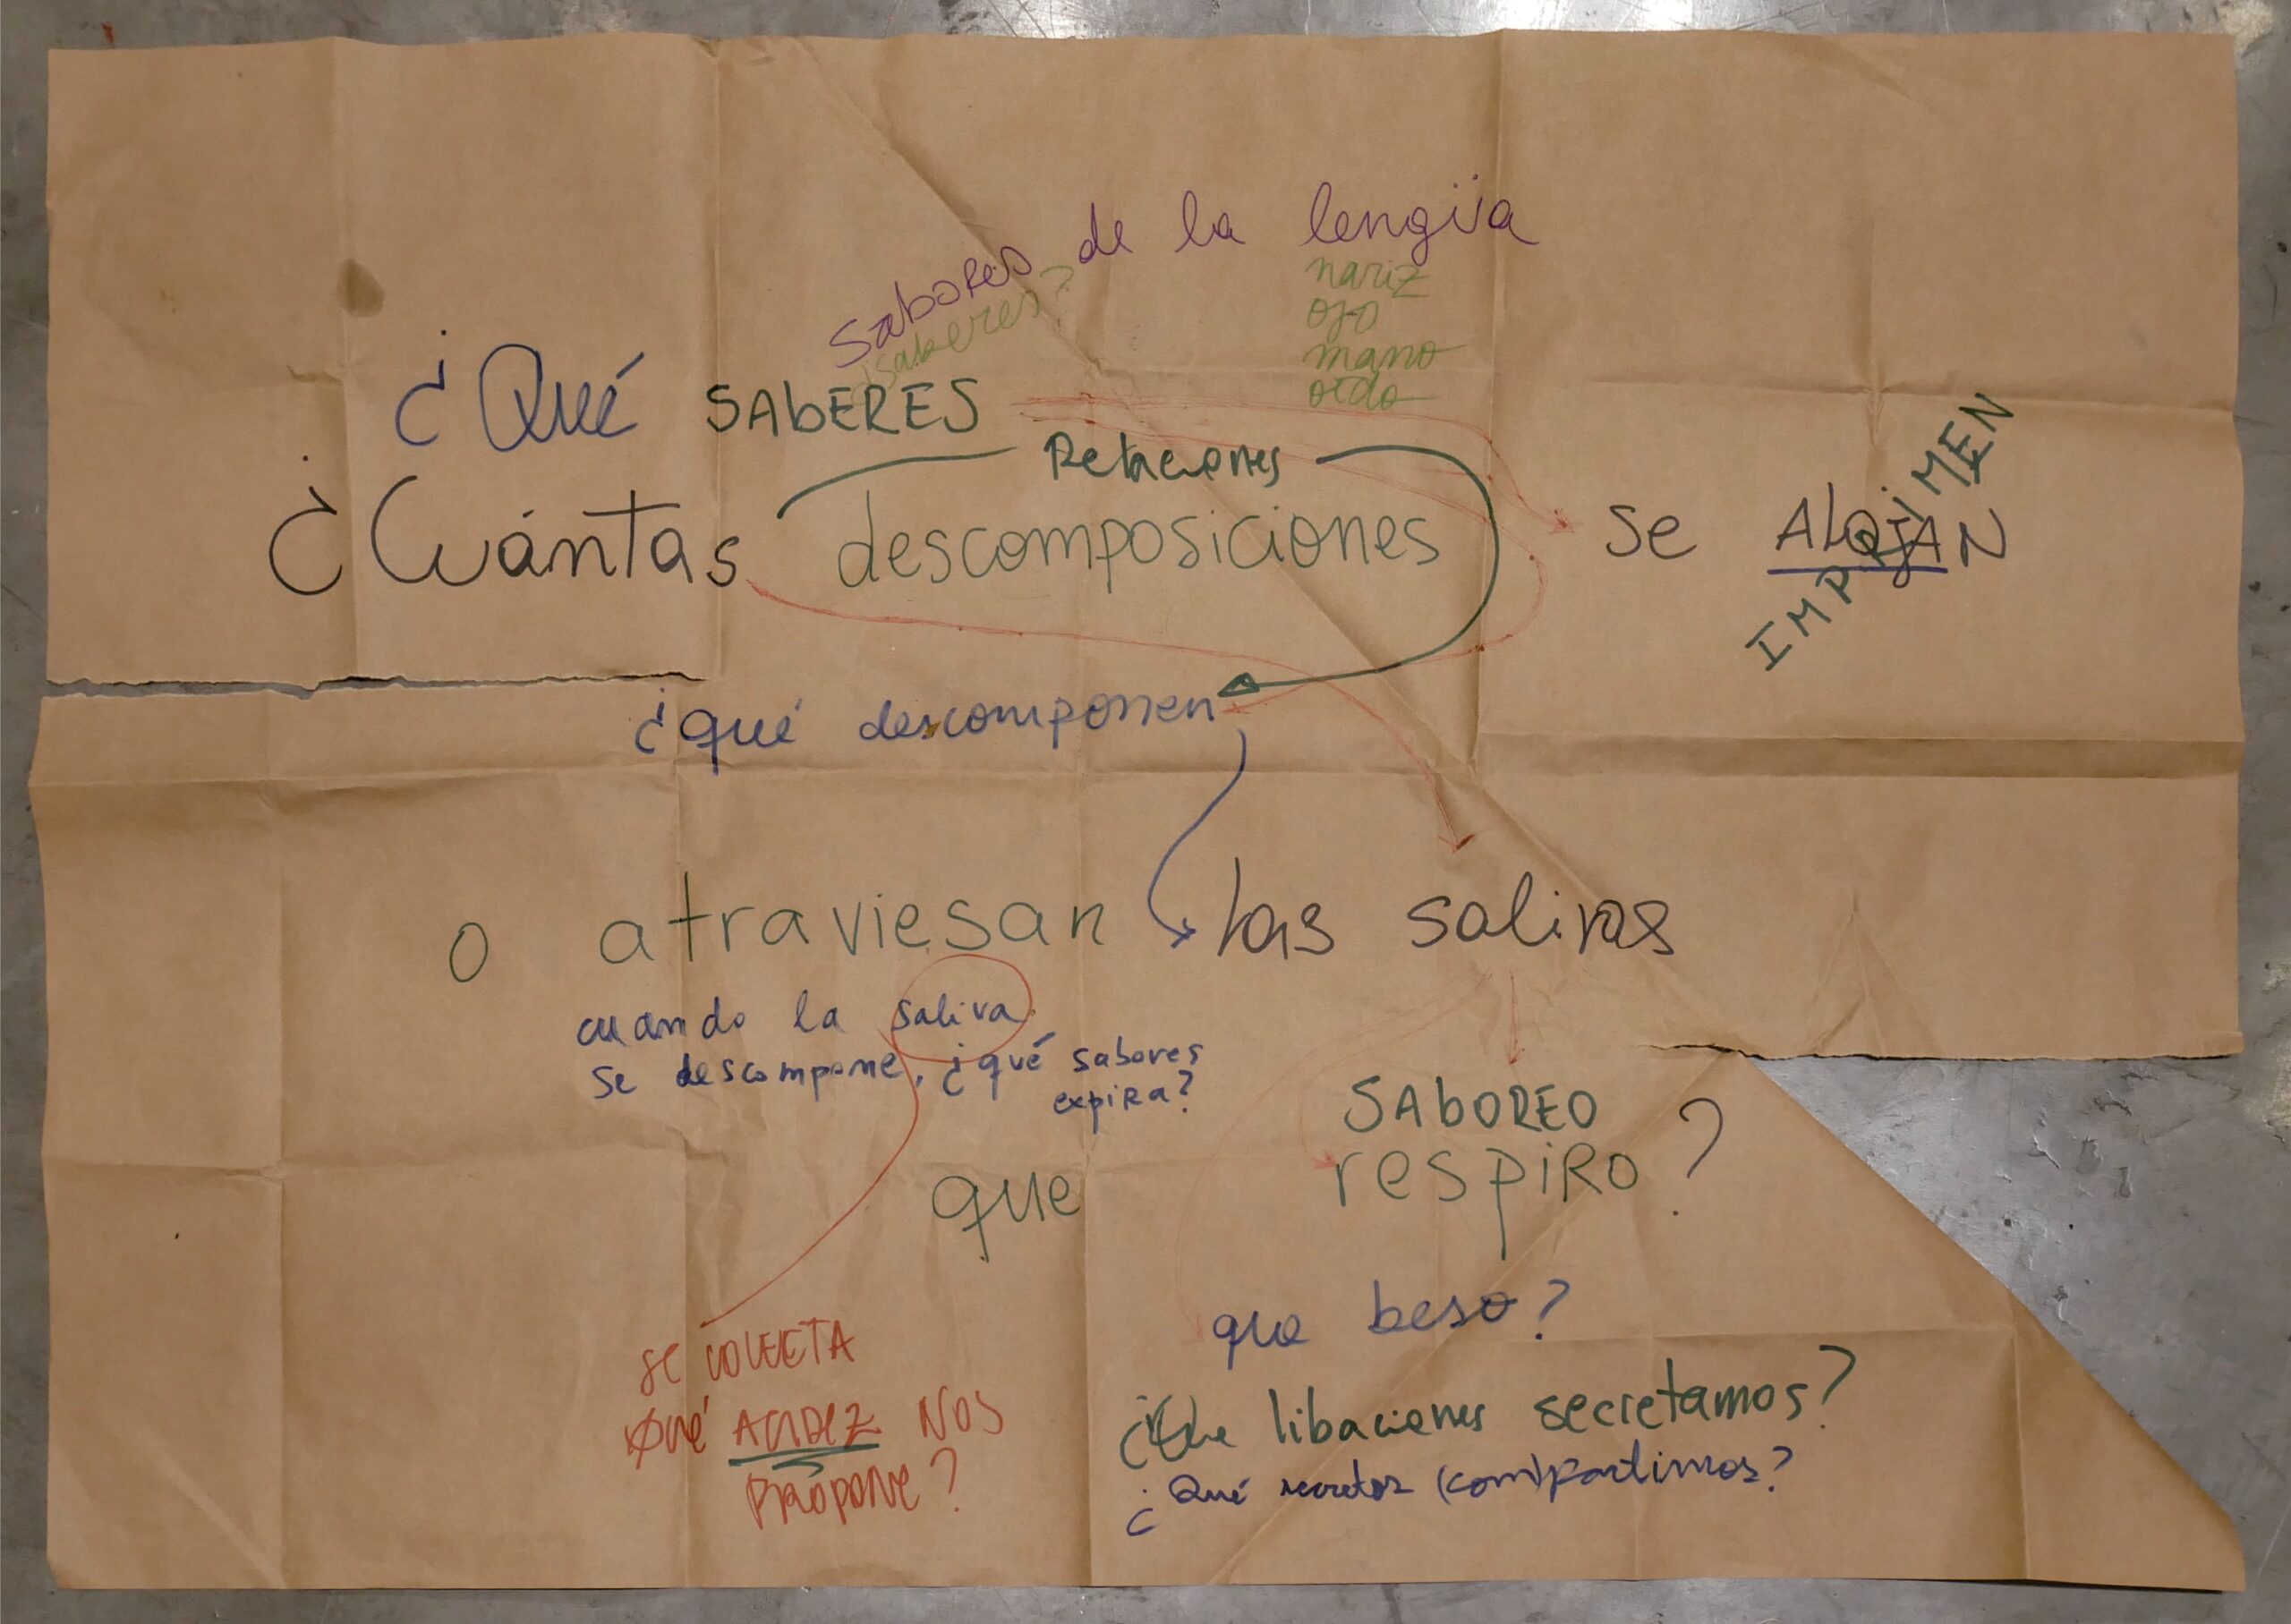 Sabores de la lengüa
¿saberes?
nariz
ojo
mano
oído
¿Qué SAbERES
Relaciones
¿Cuántas descomposiciones se ALOJAN
IMPRIMEN
¿qué descomponen
o atraviesan las salivas
cuando la saliva
se descompone, ¿qué sabores
expira?
SAbOREO
que respiro?
se colecta
Qué ACIDEZ NOS
PROPONE?
que beso?
¿Que libaciones secretamos?
¿Qué secretos (com)partimos?